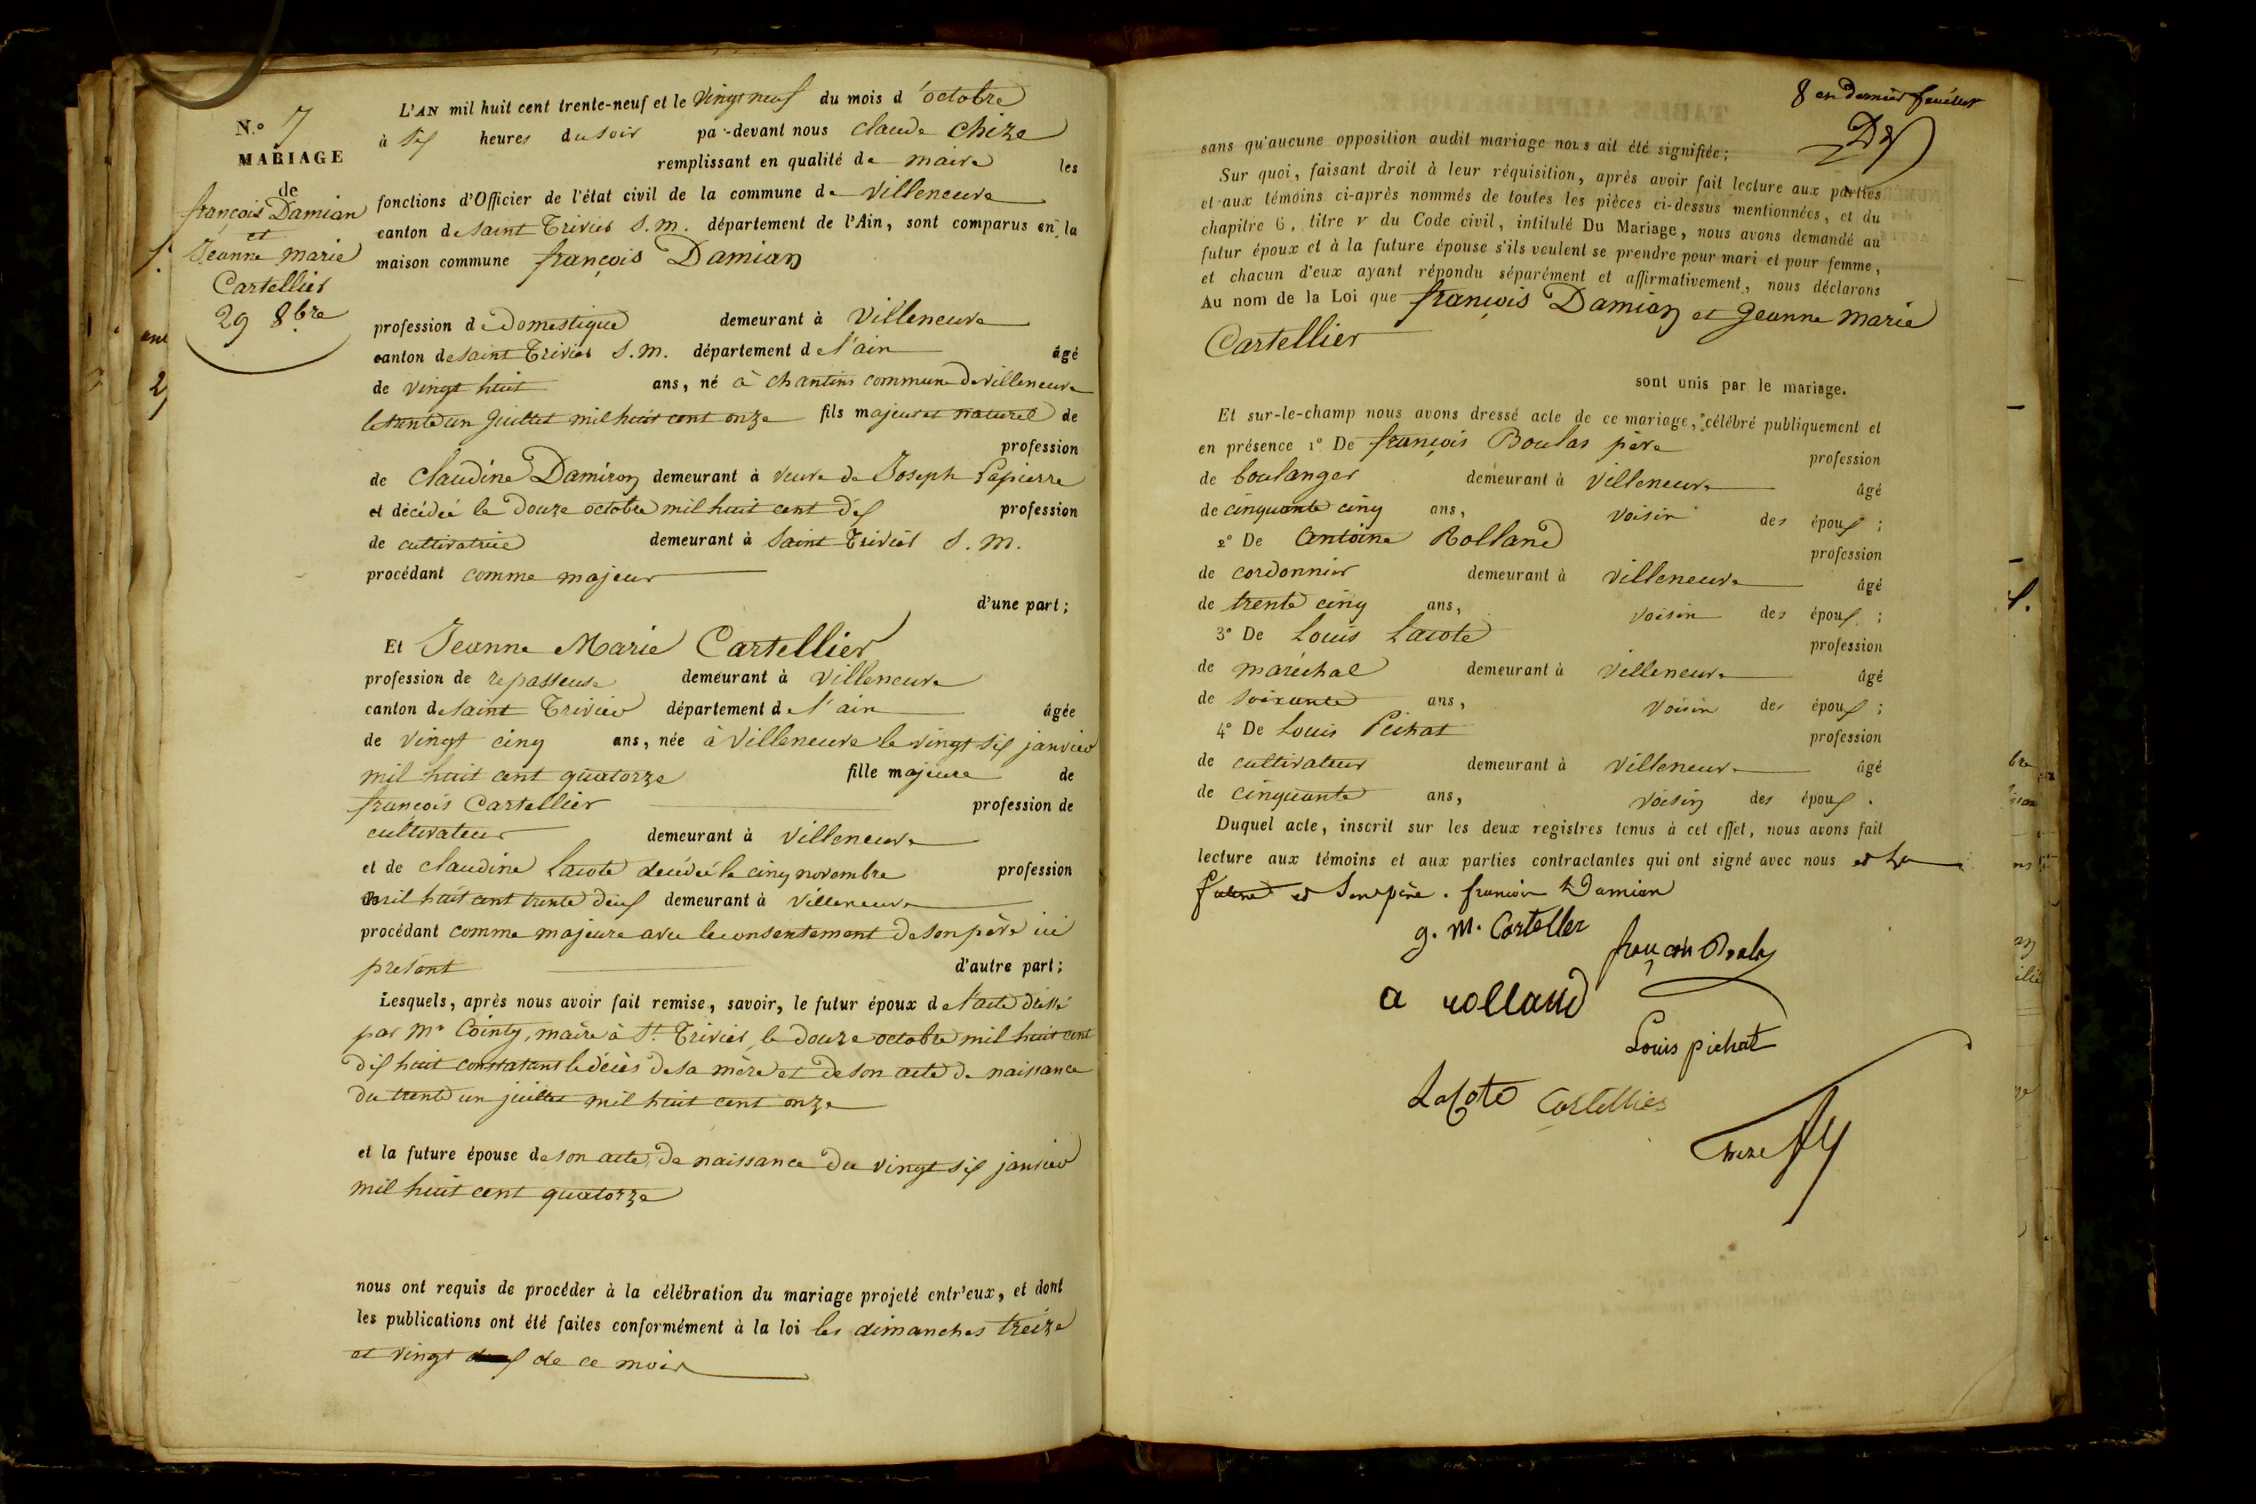 N.° 7
MARIAGE
de
françois Damian
et
Jeanne marie
Cartellier
29 8bre
L'AN mil huit cent trente-neuf et le vingt neuf du mois d'octobre
à six heures du soir par-devant nous claude chize
remplissant en qualité de maire les
fonctions d'Officier de l'état civil de la commune de villeneuve
canton de saint Trivier S. M. département de l'Ain, sont comparus en la
maison commune françois Damian
profession de Domestique demeurant à villeneuve
canton de saint Trivier S. M. département de l'ain âgé
de vingt huit ans, né à chantins commune de villeneuve
le trente un juillet mil huit cent onze fils majeur et naturel de
profession
de claudine Damiron demeurant à veuve de Joseph Lapierre
et décédée le douze octobre mil huit cent dix profession
de cultivatrice demeurant à saint Trivier S. M.
procédant comme majeur
d'une part;
Et Jeanne Marie Cartellier
profession de repasseuse demeurant à villeneuve
canton de saint Trivier département de l'ain âgée
de vingt cinq ans, née à villeneuve le vingt six janvier
mil huit cent quatorze fille majeure de
françois Cartellier profession de
cultivateur demeurant à villeneuve
et de claudine Lacote décédée le cinq novembre profession
mil huit cent trente deux demeurant à villeneuve
procédant comme majeure avec le consentement de son père ici
présent d'autre part;
Lesquels, après nous avoir fait remise, savoir, le futur époux de l'acte dressé
par Mr Cointy, maire à St. Trivier, le douze octobre mil huit cent
dix huit constatant le décès de sa mère et de son acte de naissance
du trente un juillet mil huit cent onze
et la future épouse de son acte de naissance du vingt six janvier
mil huit cent quatorze
nous ont requis de procéder à la célébration du mariage projeté entr'eux, et dont
les publications ont été faites conformément à la loi les dimanches treize
et vingt de ce mois
8 et dernier feuillet
sans qu'aucune opposition audit mariage nous ait été signifiée;
Sur quoi, faisant droit à leur réquisition, après avoir fait lecture aux parties
et aux témoins ci-après nommés de toutes les pièces ci-dessus mentionnées, et du
chapitre 6, titre v du Code civil, intitulé Du Mariage, nous avons demandé au
futur époux et à la future épouse s'ils veulent se prendre pour mari et pour femme,
et chacun d'eux ayant répondu séparément et affirmativement, nous déclarons
Au nom de la Loi que françois Damian et Jeanne Marie
Cartellier
sont unis par le mariage.
Et sur-le-champ nous avons dressé acte de ce mariage, célébré publiquement et
en présence 1° De françois Boulas père
profession
de boulanger demeurant à villeneuve âgé
de cinquante cinq ans, voisin des époux;
2° De Antoine Rolland
profession
de cordonnier demeurant à villeneuve âgé
de trente cinq ans, voisin des époux;
3° De Louis Lacote
profession
de maréchal demeurant à villeneuve âgé
de soixante ans, voisin des époux;
4° De Louis Pichat
profession
de cultivateur demeurant à villeneuve âgé
de cinquante ans, voisin des époux.
Duquel acte, inscrit sur les deux registres tenus à cet effet, nous avons fait
lecture aux témoins et aux parties contractantes qui ont signé avec nous et la
future et son père. françois Damian
g. m. Carteller
françois Boulas
a rolland
Louis pichat
Lacote Cartellier
Chize